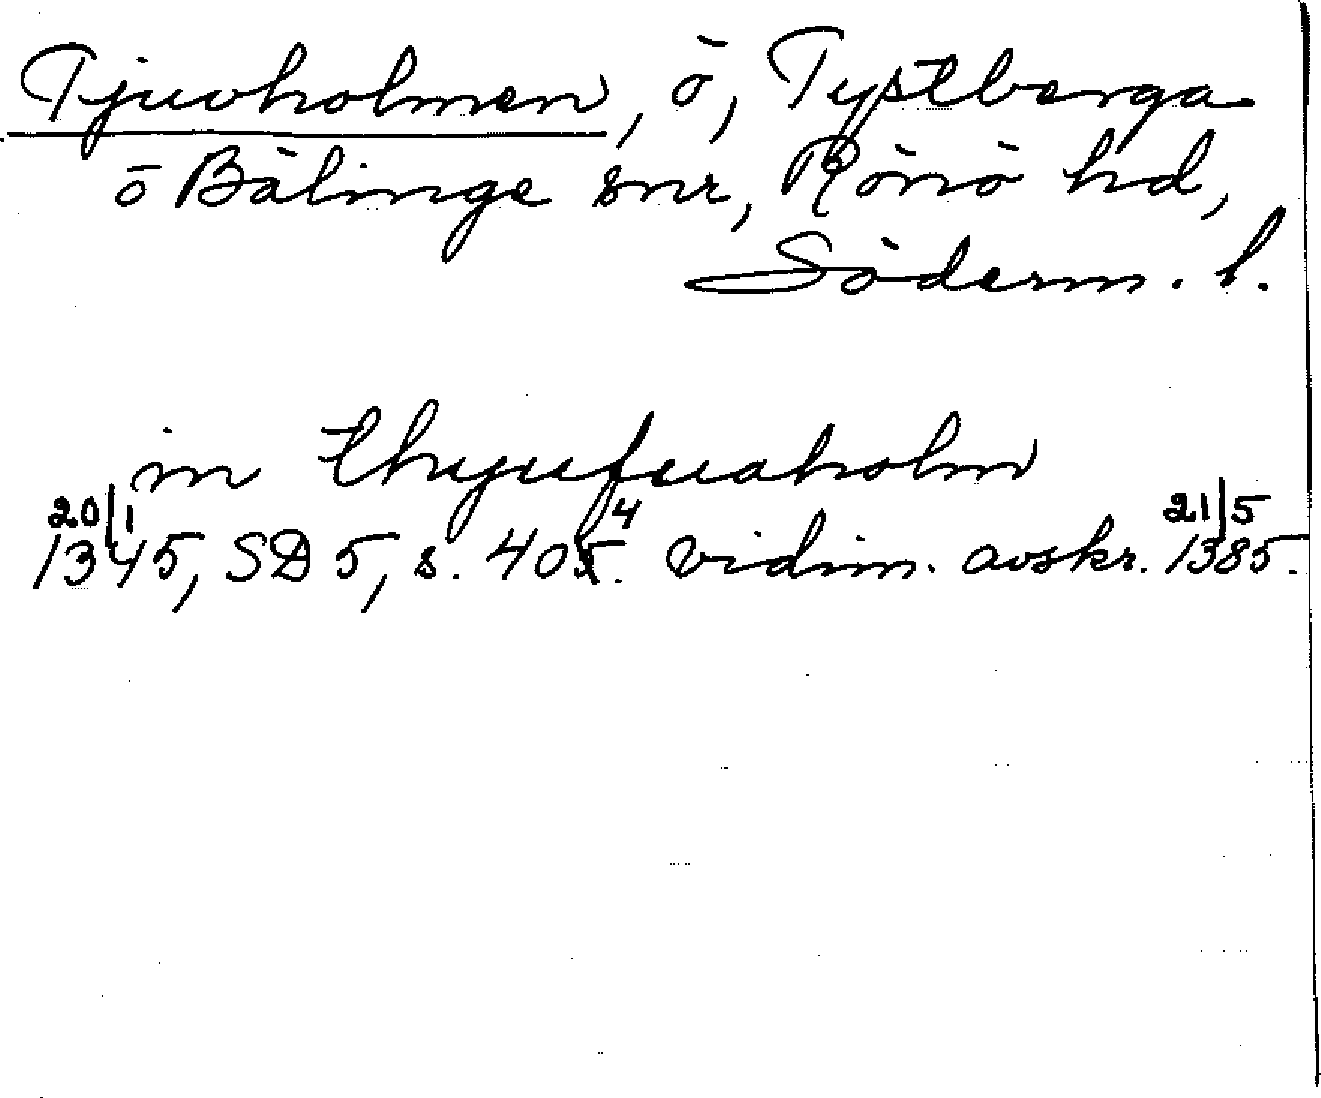 Tjuvholmen, ö, Tystberga
o Bälinge snr, Rönö hd,
Söderm. l.
in thyufuaholm
20/1 1345, SD 5, s. 404. vidim. avskr. 21/5 1385.